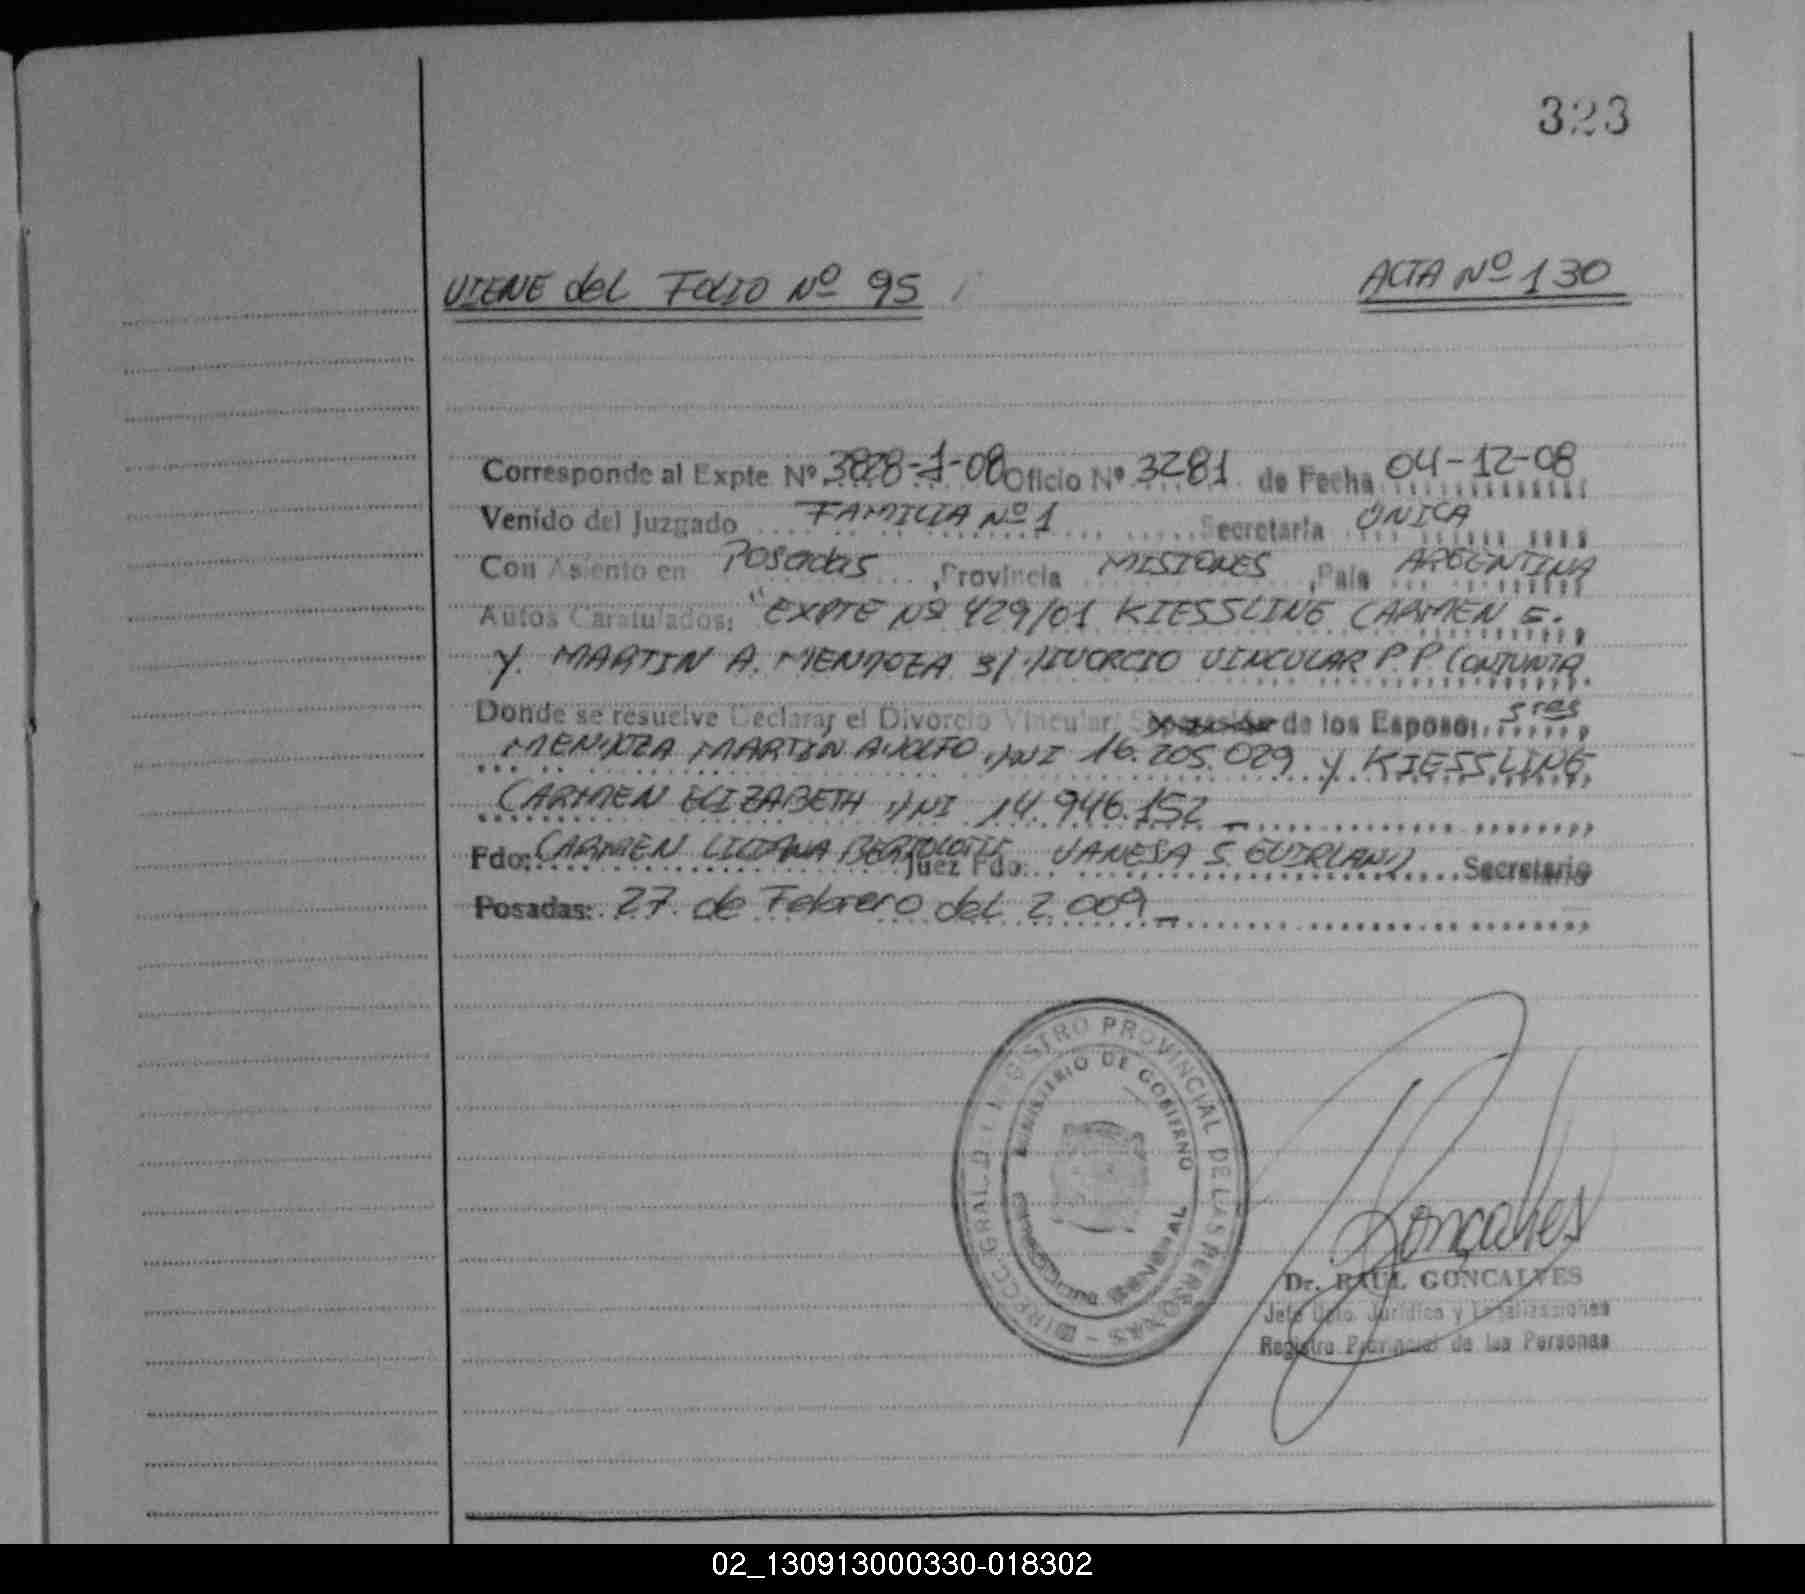 323
VIENE del FOLIO Nº 95
ACTA Nº 130
Corresponde al Expte Nº 3828-1-08 Oficio Nº 3281 de Fecha 04-12-08
Venido del Juzgado FAMILIA Nº 1 Secretaria ÚNICA
Con Asiento en Posadas, Provincia MISIONES, Pais ARGENTINA
Autos Caratulados: "EXPTE Nº 429/01 KIESSLING CARMEN E.
Y MARTIN A. MENDOZA S/ DIVORCIO VINCULAR P.P. CONJUNTA
Donde se resuelve Declarar el Divorcio Vincular, de los Esposo: Sres
MENDOZA MARTIN ADOLFO, DNI 16.205.029 y KIESSLING,
CARMEN ELIZABETH DNI 14.946.152
Fdo: CARMEN LILIANA Juez Fdo: VANESA S. GUIRLAND Secretario
Posadas: 27 de Febrero del 2.009
DIRECC. GRAL. DEL REGISTRO PROVINCIAL DE LAS PERSONAS
MINISTERIO DE GOBIERNO
DIRECCION GENERAL
Goncalves
Dr. RAUL GONCALVES
Jefe Dpto. Jurídico y Legalizaciones
Registro Provincial de las Personas
02_130913000330-018302